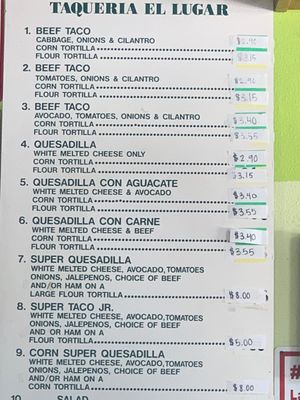 TAQUERIA EL LUGAR
1. BEEF TACO
CABBAGE, ONIONS & CILANTRO
CORN TORTILLA $2.90
FLOUR TORTILLA $3.15
2. BEEF TACO
TOMATOES, ONIONS & CILANTRO
CORN TORTILLA $2.90
FLOUR TORTILLA $3.15
3. BEEF TACO
AVOCADO, TOMATOES, ONIONS & CILANTRO
CORN TORTILLA $3.40
FLOUR TORTILLA $3.55
4. QUESADILLA
WHITE MELTED CHEESE ONLY
CORN TORTILLA $2.90
FLOUR TORTILLA $3.15
5. QUESADILLA CON AGUACATE
WHITE MELTED CHEESE & AVOCADO
CORN TORTILLA $3.40
FLOUR TORTILLA $3.55
6. QUESADILLA CON CARNE
WHITE MELTED CHEESE & BEEF
CORN TORTILLA $3.40
FLOUR TORTILLA $3.55
7. SUPER QUESADILLA
WHITE MELTED CHEESE, AVOCADO,TOMATOES
ONIONS, JALEPENOS, CHOICE OF BEEF
AND/OR HAM ON A
LARGE FLOUR TORTILLA $8.00
8. SUPER TACO JR.
WHITE MELTED CHEESE, AVOCADO,TOMATOES
ONIONS, JALEPENOS, CHOICE OF BEEF
AND OR HAM ON A
FLOUR TORTILLA $5.00
9. CORN SUPER QUESADILLA
WHITE MELTED CHEESE, AVOCADO,TOMATOES
ONIONS, JALEPENOS, CHOICE OF BEEF
AND/OR HAM ON A
CORN TORTILLA $8.00
10. SALAD